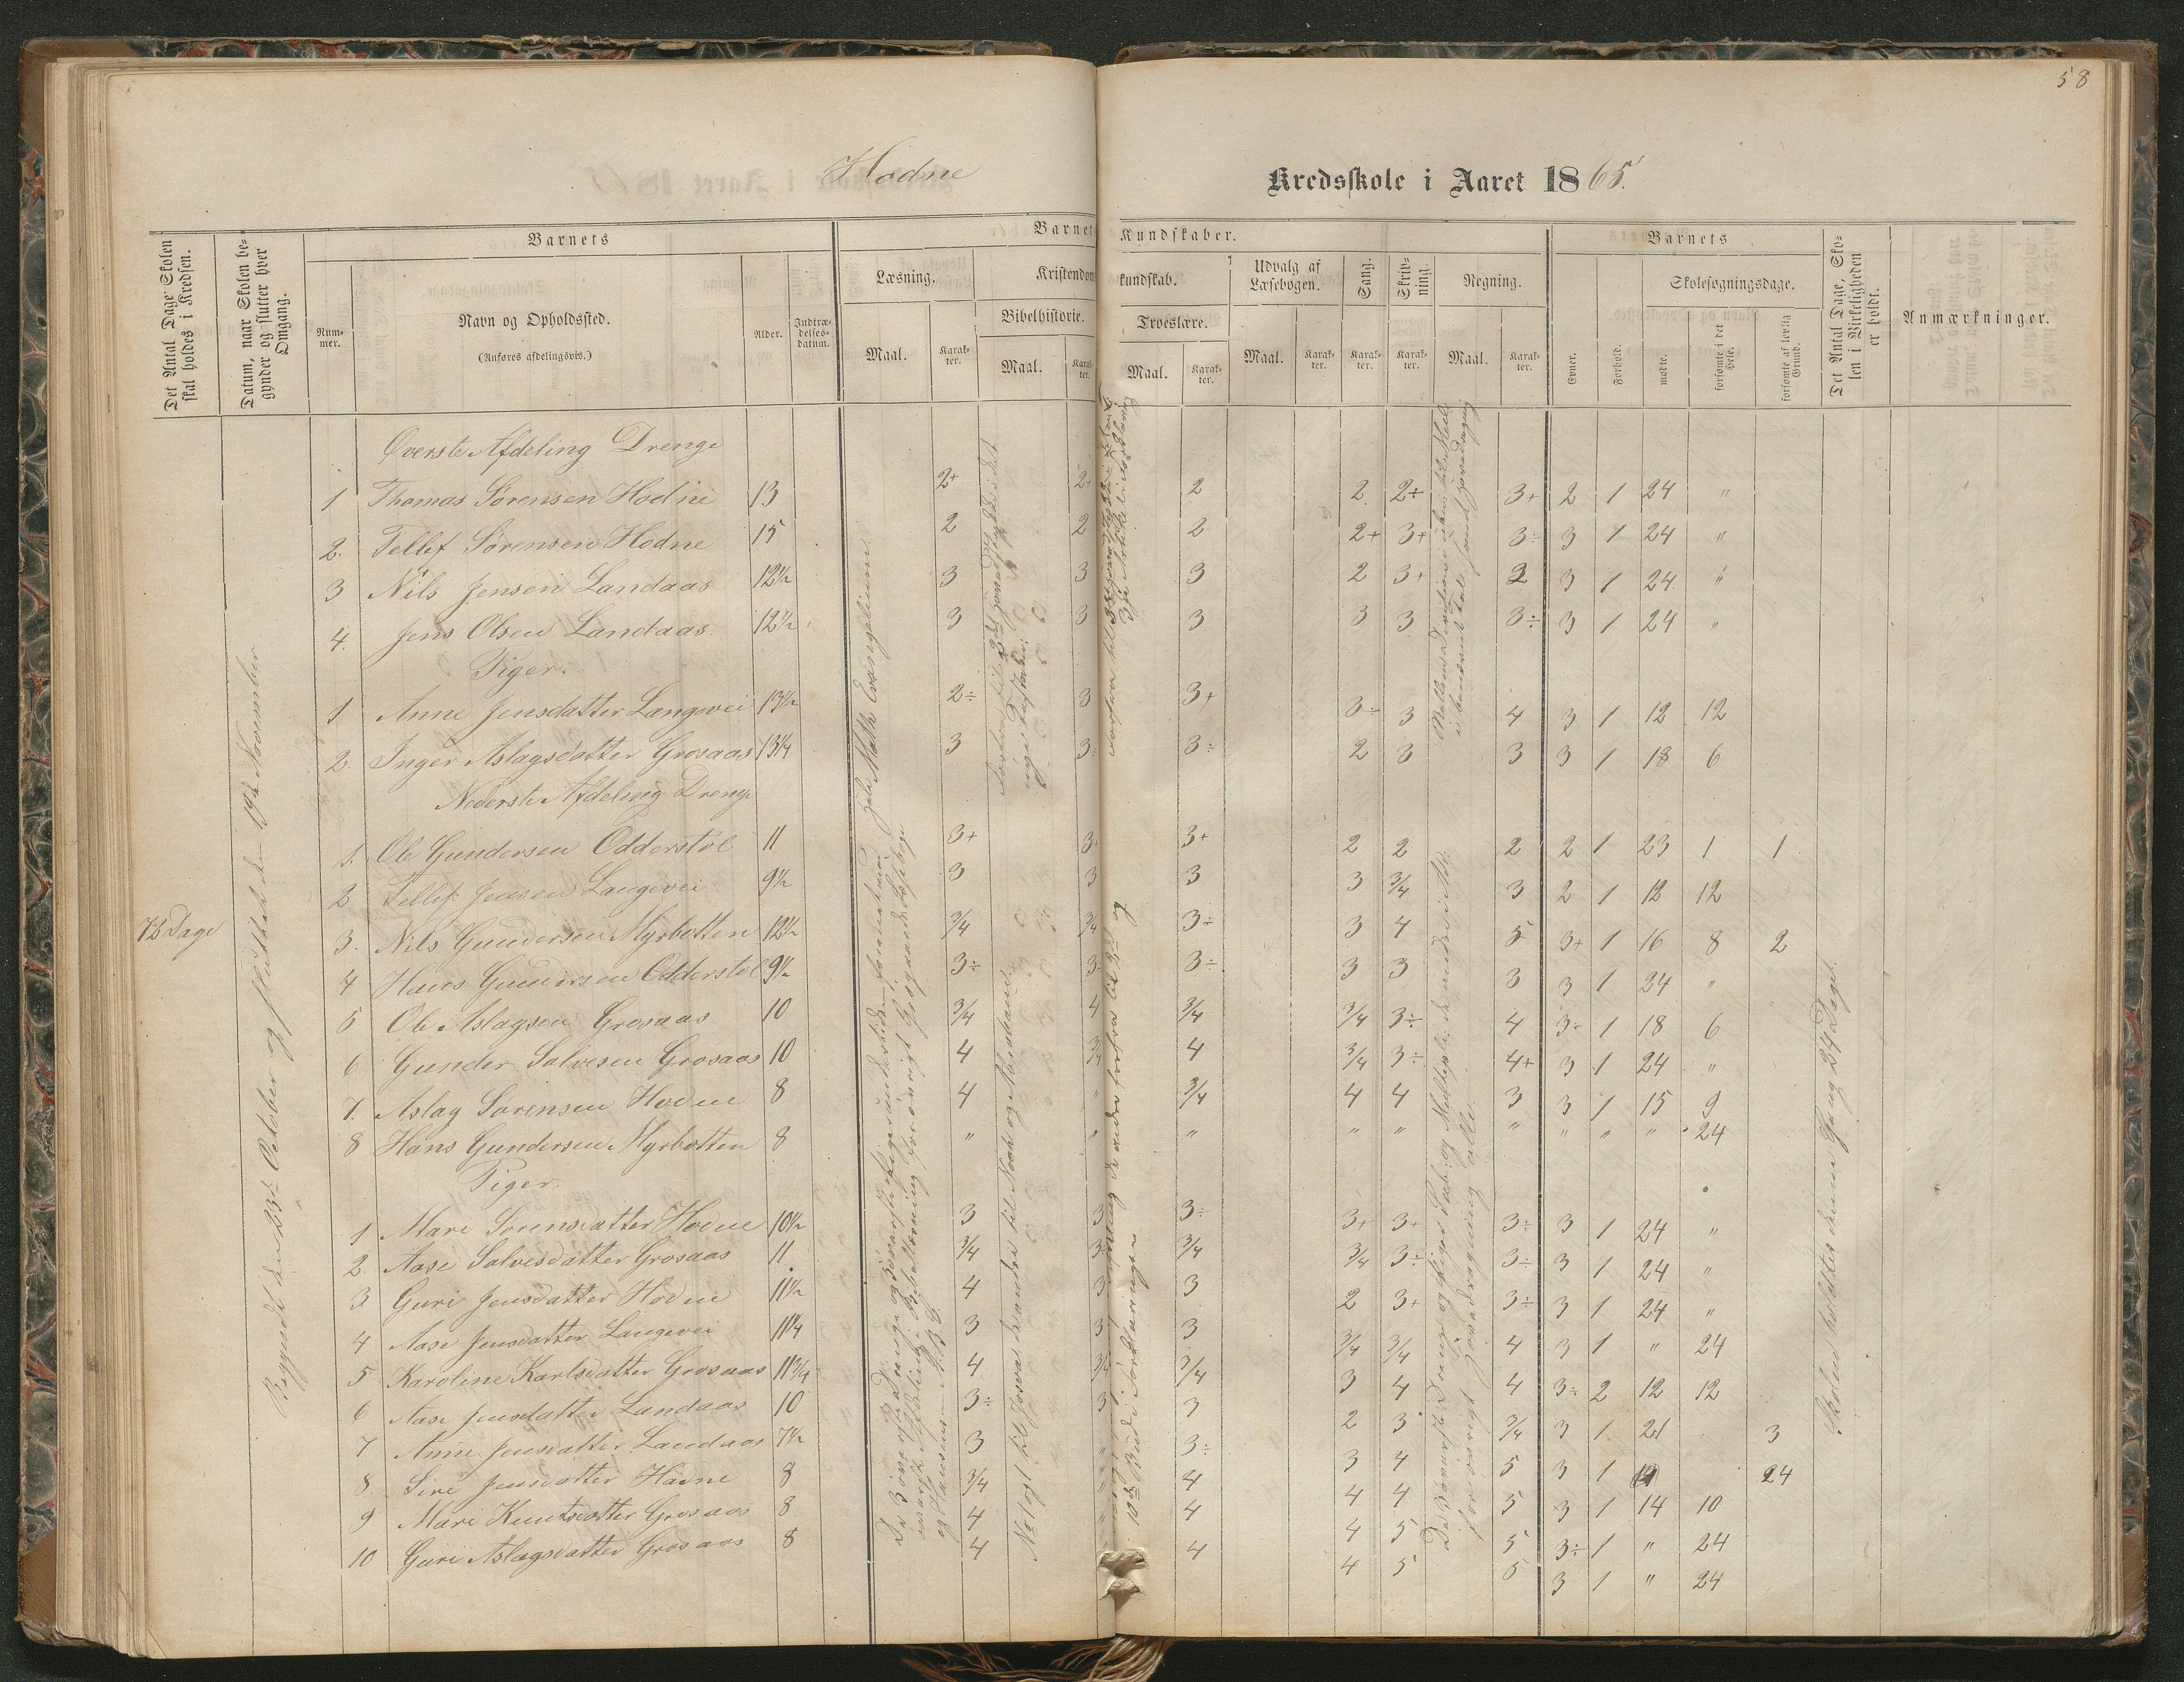 58
Hodne Kredsskole i Aaret 1865.
Det Antal Dage Skolen skal holdes i Kredsen.
Datum, naar Skolen begynder og slutter hver Omgang.
Barnets
Nummer.
Navn og Opholdssted.
(Anføres afdelingsvis.)
Alder.
Indtrædelsesdatum.
Barnets Kundskaber.
Læsning.
Maal.
Karakter.
Kristendomskundskab.
Bibelhistorie.
Maal.
Karakter.
Troeslære.
Maal.
Karakter.
Udvalg af Læsebogen.
Maal.
Karakter.
Sang.
Karakter.
Skrivning.
Karakter.
Regning.
Maal.
Karakter.
Barnets
Evner.
Forhold.
Skolesøgningsdage.
mødte.
forsømte i det Hele.
forsømte af lovlig Grund.
Det Antal Dage, Skolen i Virkeligheden er holdt.
Anmærkninger.
72 Dage
Begyndt den 23de October og sluttet den 19de November
Øverste Afdeling Drenge
1 Thomas Sørensen Hodne 13 2+ 2+ 2 2 2+ 3+ 2 1 24 "
2. Tellef Sørensen Hodne 15 2 2 2 2+ 3+ 3÷ 3 1 24 "
3 Nils Jensen Landaas 12½ 3 3 3 2 3+ 2 3 1 24 "
4. Jens Olsen Landaas 12½ 3 3 3 3 3 3÷ 3 1 24 "
Piger.
1 Anne Jensdatter Langevei 13½ 2÷ 3 3+ 3÷ 3 4 3 1 12 12
2. Inger Aslagsdatter Grosaas 13¼ 3 3÷ 3÷ 2 3 3 3 1 18 6
Nederste Afdeling Drenge
1. Ole Gundersen Odderstøl 11 3+ 3 3+ 2 2 2 2 1 23 1 1
2 Tellef Jensen Langevei 9½ 3 3 3 3 3/4 3 2 1 12 12
3. Nils Gundersen Myrbotten 12½ 3/4 3/4 3÷ 3 4 5 3+ 1 16 8 2
4 Hans Gundersen Odderstøl 9½ 3÷ 3 3÷ 3 3 3 3 1 24 "
5 Ole Aslagsen Grosaas 10 3/4 4 3/4 3/4 3÷ 4 3÷ 1 18 6
6 Gunder Salvesen Grosaas 10 4 3/4 4 3/4 3÷ 4+ 3 1 24 "
7. Aslag Sørensen Hodne 8 4 " 3/4 4 4 3 3 1 15 9
8 Hans Gundersen Myrbotten 8 " " " " " " " " " 24
Piger.
1 Mari Sørensdatter Hodne 10½ 3 3 3÷ 3+ 3+ 3÷ 3 1 24 "
2. Aase Salvesdatter Grosaas 11 3/4 3 3/4 3/4 3÷ 3÷ 3 1 24 "
3 Guri Jensdatter Hodne 11½ 4 3 3 2 3+ 3÷ 3 1 24 "
4 Aase Jensdatter Langevei 11¼ 3 3 3 3/4 3/4 4 3 1 " 24
5 Karoline Karlsdatter Grosaas 11¾ 4 3/4 3/4 3 4 4 3÷ 2 12 12
6 Aase Jensdatter Landaas 10 3÷ 3 3 2 3 3/4 3 1 21 3
7 Anne Jensdatter Landaas 7½ 3 " 3÷ 3 4 5 3 1 24
8. Siri Jensdatter Hodne 8 3/4 " 4 4 4 5 3 1 14 10
9 Mari Knutsdatter Grosaas 8 4 " 4 4 5 5 3÷ 1 " 24
10 Guri Aslagsdatter Grosaas 8 4 4 4 5 5 3 1 " 24
hele Math Evangelium
No 1 og 2 til Josva de andre til Noah og Abraham
10de Bud i Forklaringen
Skolen holdtes denne Gang 24 Dage.